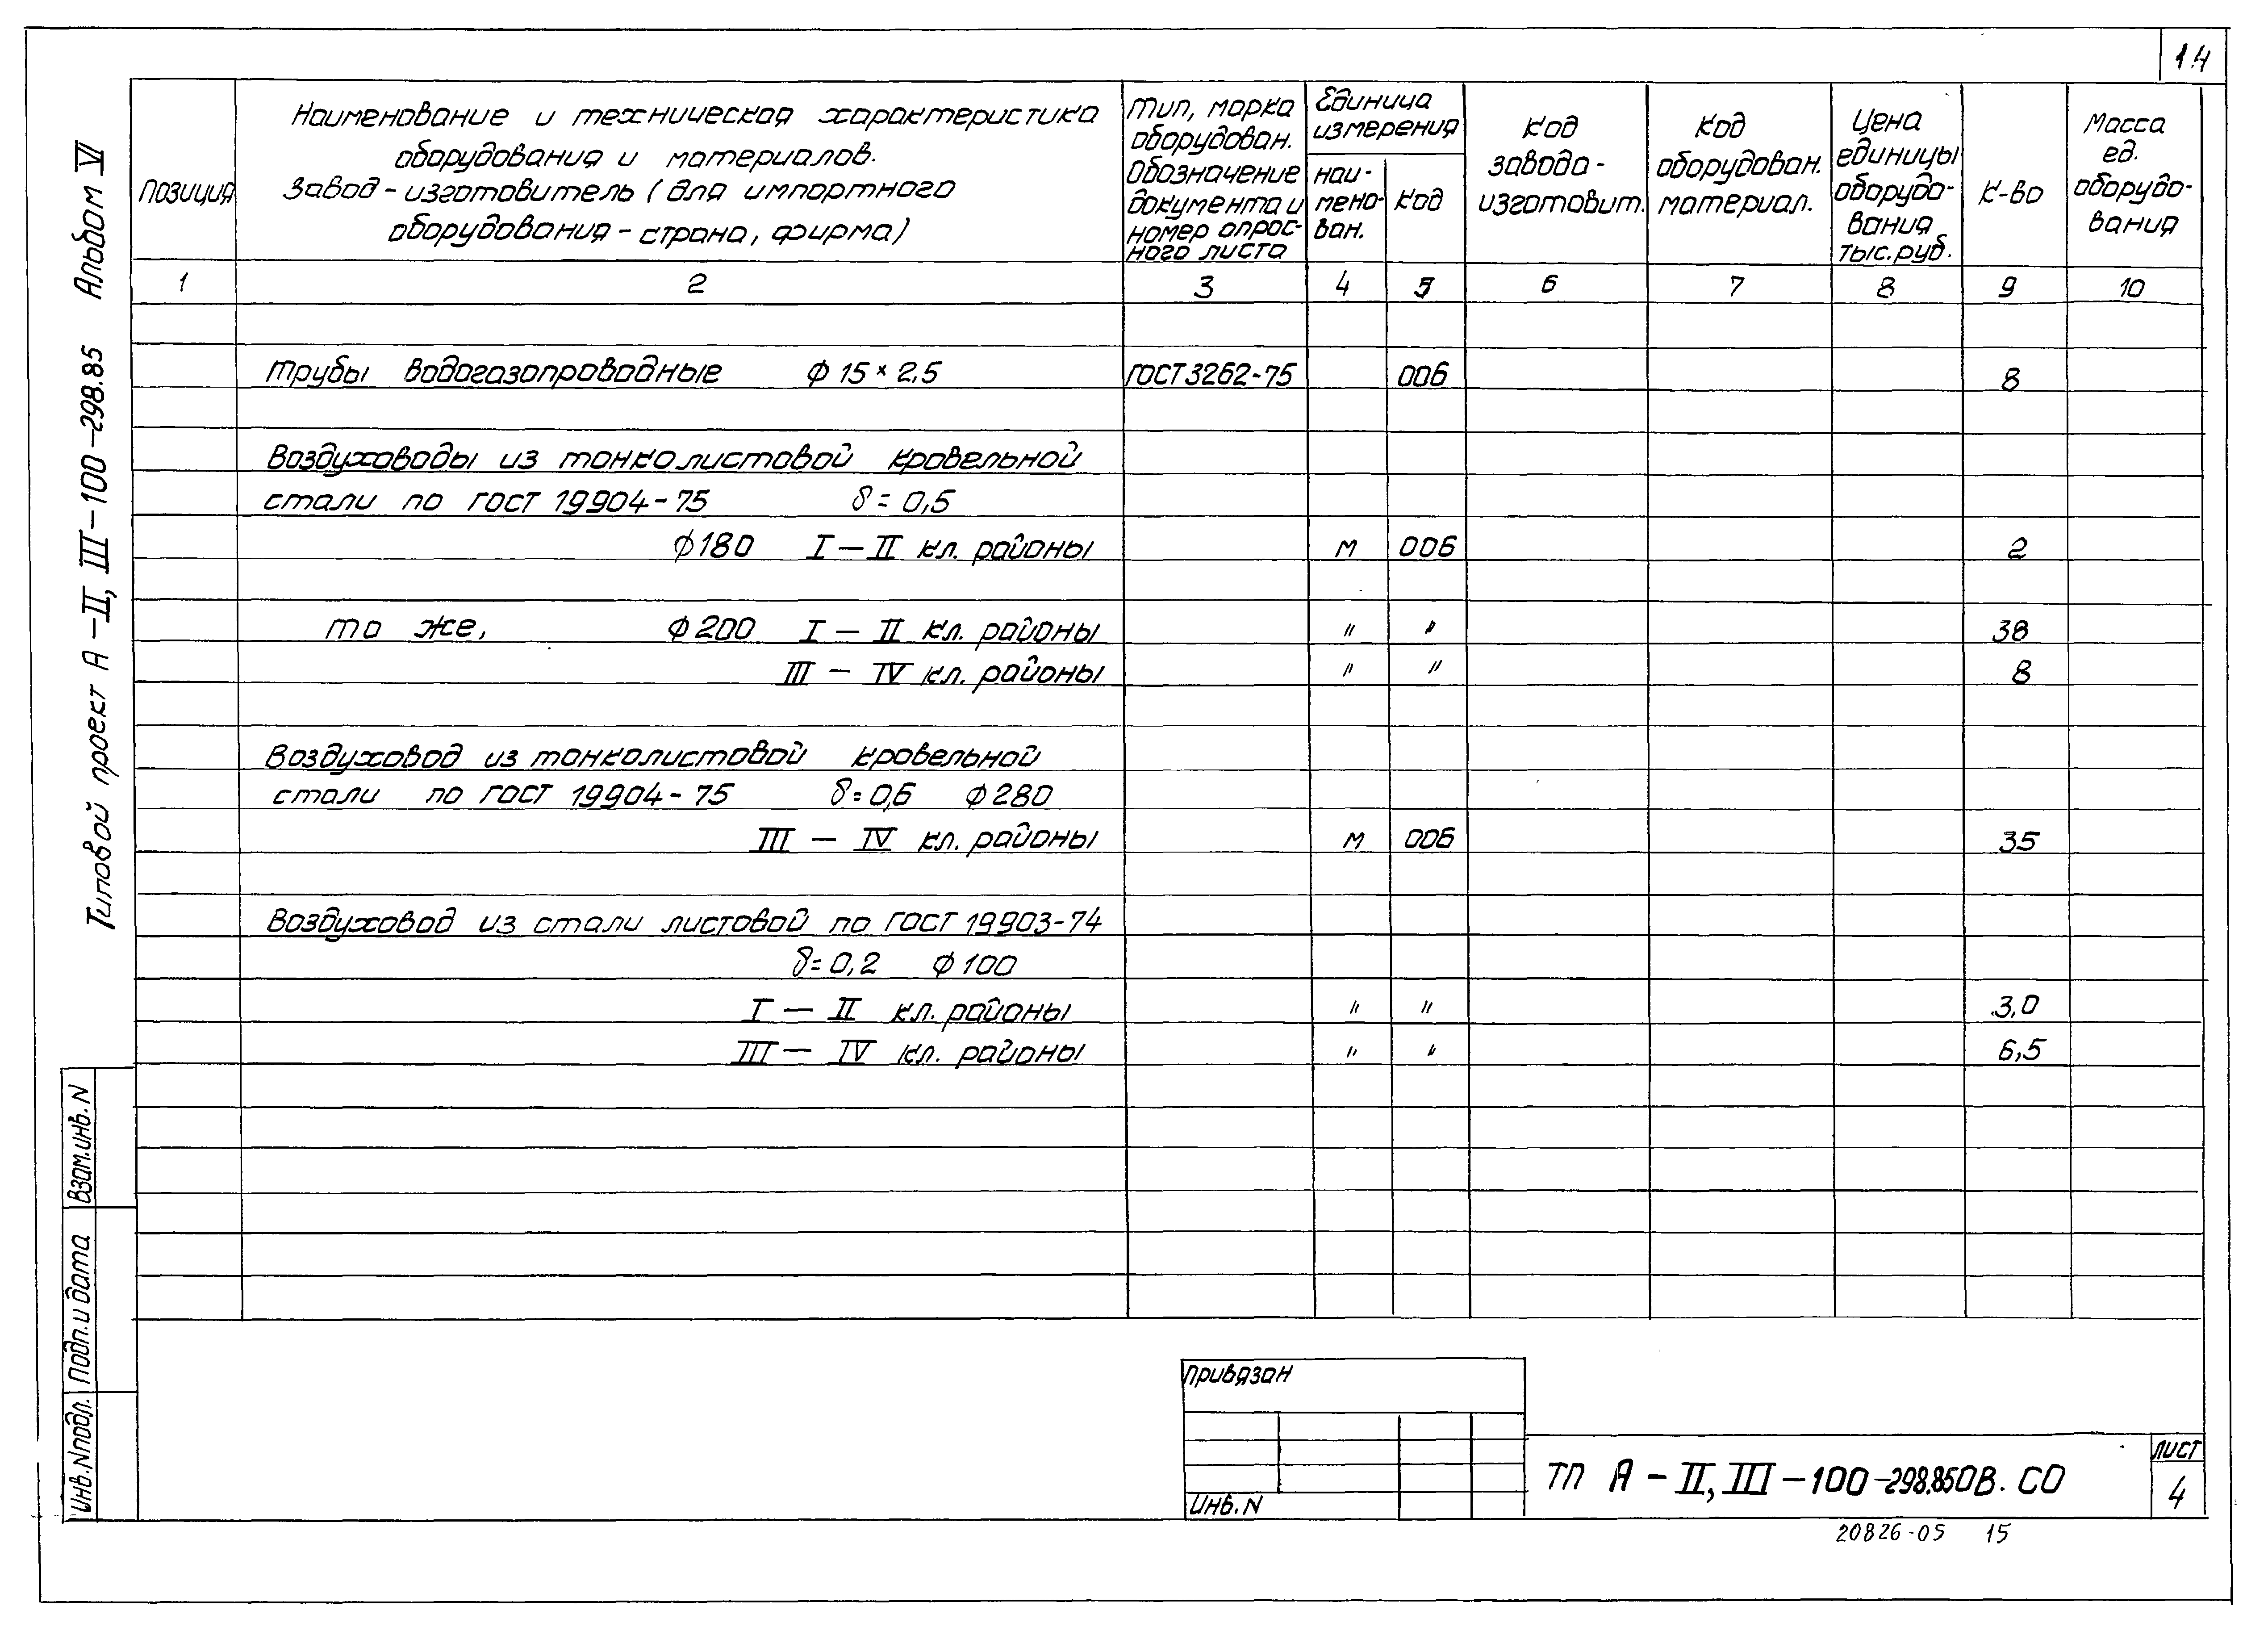 14
Типовой проект А-II, III-100-298.85 Альбом VI
Позиция
Наименование и техническая характеристика
оборудования и материалов.
Завод-изготовитель (для импортного
оборудования-страна, фирма)
Тип, марка
оборудован.
Обозначение
документа и
номер опрос-
ного листа
Единица
измерения
наи-
мено-
ван.
Код
Код
завода-
изготовит.
Код
оборудован.
материал.
Цена
единицы
оборудо-
вания
тыс.руб.
К-во
Масса
ед.
оборудо-
вания
1 2 3 4 5 6 7 8 9 10
Трубы водогазопроводные ϕ 15×2,5 ГОСТ 3262-75 006 8
Воздуховоды из тонколистовой кровельной
стали по ГОСТ 19904-75 δ=0,5
ϕ180 I-II кл. районы м 006 2
то же, ϕ200 I-II кл. районы " " 38
III-IV кл. районы " " 8
Воздуховод из тонколистовой кровельной
стали по ГОСТ 19904-75 δ=0,6 ϕ280
III-IV кл. районы м 006 35
Воздуховод из стали листовой по ГОСТ 19903-74
δ=0,2 ϕ100
I-II кл. районы " " 3,0
III-IV кл. районы " " 6,5
Взам.инв.N
Подп. и дата
Инв.Nподл.
Привязан
Инв.N
ТП А-II, III-100-298.85ОВ.СО
Лист
4
20826-05 15